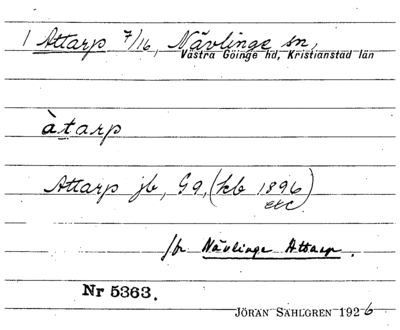 1 Attarp 7/16, Nävlinge sn,
Västra Göinge hd, Kristianstad län
àtarp
Attarp jb, G9, (kb 1896)
etc
/br Nävlinge Attarp.
Nr 5363.
JÖRAN SAHLGREN 1926